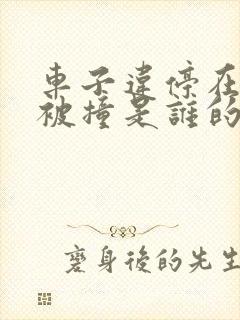 車子違停在
被撞是誰的
麼身後的先生